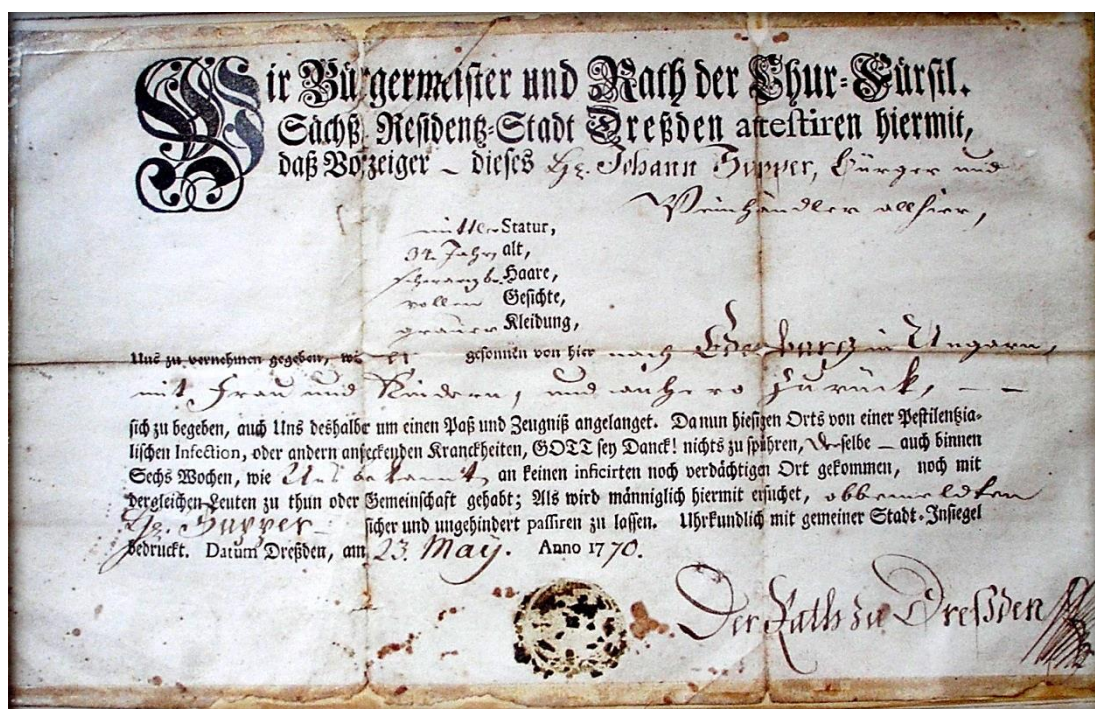 Wir Bürgermeister und Rath der Chur-Fürstl.
Sächß. Residentz-Stadt Dreßden attestiren hiermit,
daß Vorzeiger – dieses Hr. Johann Supper, Bürger und
Weinhändler allhier,
mittler Statur,
34. Jahr, alt,
schwartzbr. Haare,
vollen Gesichte,
grauer Kleidung,
Uns zu vernehmen gegeben, wie er gesonnen von hier nach Edenburg in Ungarn,
mit Frau und Kindern, und anhero zurück, — —
sich zu begeben, auch Uns deshalbr um einen Paß und Zeugniß angelanget. Da nun hiesigen Orts von einer Pestilentzia-
lischen Infection, oder andern ansteckenden Kranckheiten, GOTT sey Danck! nichts zu spühren, Derselbe — auch binnen
Sechs Wochen, wie Uns bekannt, an keinen inficirten noch verdächtigen Ort gekommen, noch mit
dergleichen Leuten zu thun oder Gemeinschaft gehabt; Als wird männiglich hiermit ersuchet, obbemeldten
Hr. Supper – sicher und ungehindert passiren zu lassen. Uhrkundlich mit gemeiner Stadt-Insiegel
bedruckt. Datum Dreßden, am 23. May. Anno 1770.
Der Rath zu Dreßden